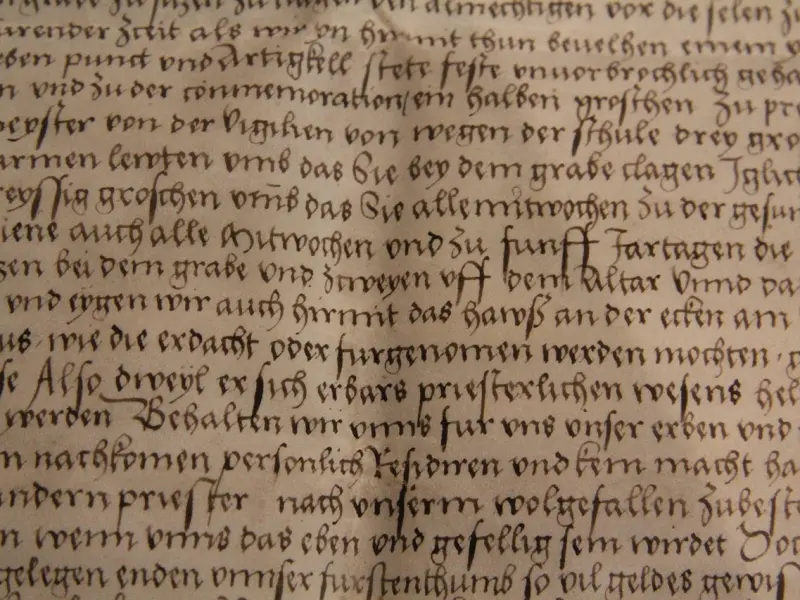 zu almechtigen vor die selen zu
urender Zceit als wir yn hirmit thun beuelhen einem y
eben punct vnd Artigkell stete feste vnuorbrochlich geha
n vnd zu der conmemoration ein halben groschen Zu pre
beyster von der Vigilien von wegen der schule drey gro
armen lewten vmb das Sie bey dem grabe clagen Iglich
reyssig groschen vmb das Sie alle mitwochen zu der gesun
iene auch alle Mitwochen vnd zu funff Jartagen die
gen bei dem grabe vnd zcweyen vff dem Altar Vnnd da
vnd eygen wir auch hirmit das hawß an der ecken am
us wie die erdacht oder furgenomen werden mochten g
se Also dweyl er sich erbars priesterlichen wesens hel
werden Behalten wir vnns fur vns vnser erben vnd
n nachkomen personlich Residiren vnd kein macht ha
andern priester nach vnserm wolgefallen zubeste
n wenn vnns das eben vnd gefellig sein wirdet Doc
gelegen enden vnnser furstenthumb so vil geldes gewis